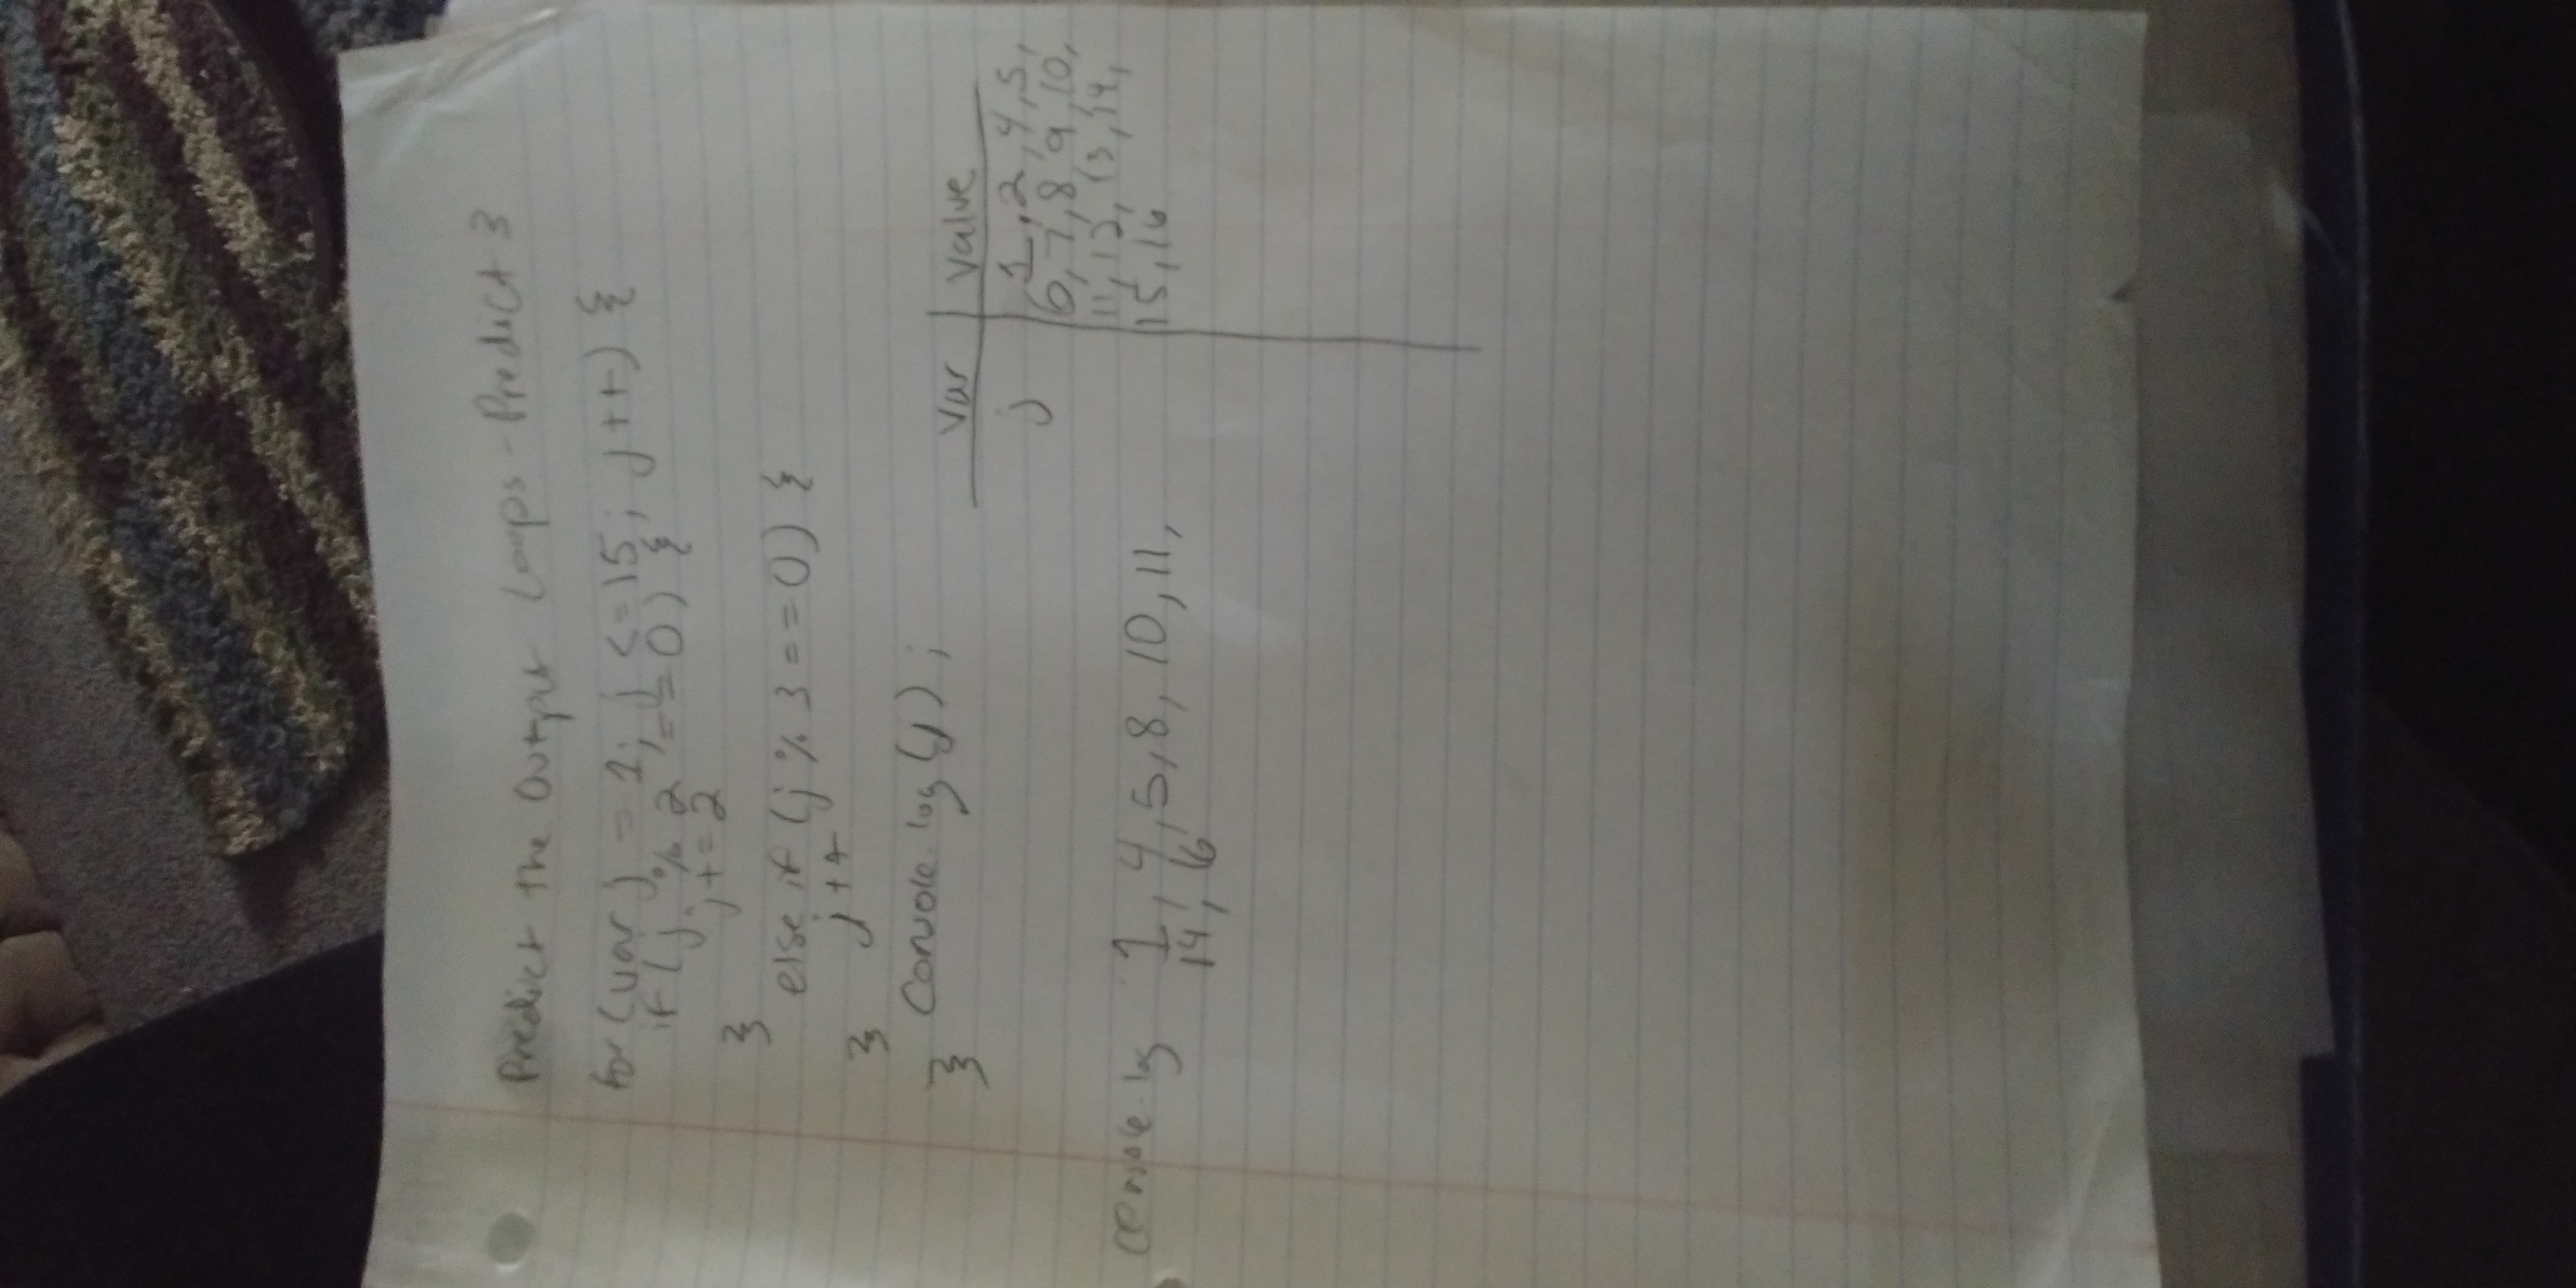 Predict the Output Loops - Predict 3
for (var j = 1; j <= 15; j++) {
if (j % 2 == 0) {
j += 2
}
else if (j % 3 == 0) {
j++
}
Console.log (j) ;
}
var value
j 1, 2, 4, 5,
6, 7, 8, 9, 10,
11, 12, 13, 14,
15, 16
console.log 1, 4, 5, 8, 10, 11,
14, 16